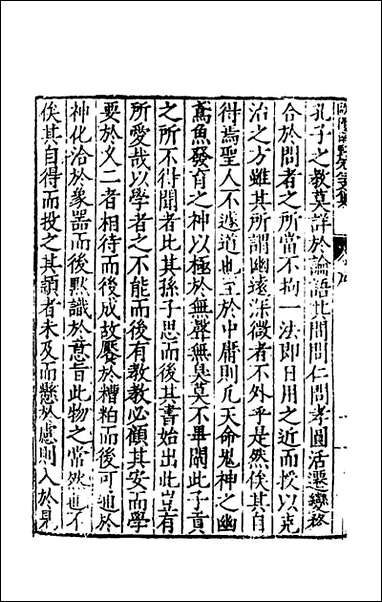 孔子之教莫詳於論語其間問仁問孝圓活遷變務
合於問者之所當不拘一法即日用之近而投以克
治之方雖其所謂幽遠深微者不外乎是然俟其自
得焉聖人不遽道也至於中庸則凡天命鬼神之幽
鳶魚發育之神以極於無聲無臭莫不畢闡此子貢
之所不得聞者比其孫子思而後其書始出此豈有
所愛哉以學者之不能而後有教教必顧其安而學
要於义二者相待而後成故饜於糟粕而後可通於
神化洽於象器而後默識於意旨此物之常然也不
俟其自得而投之其穎者未及而懸於慮則入於見